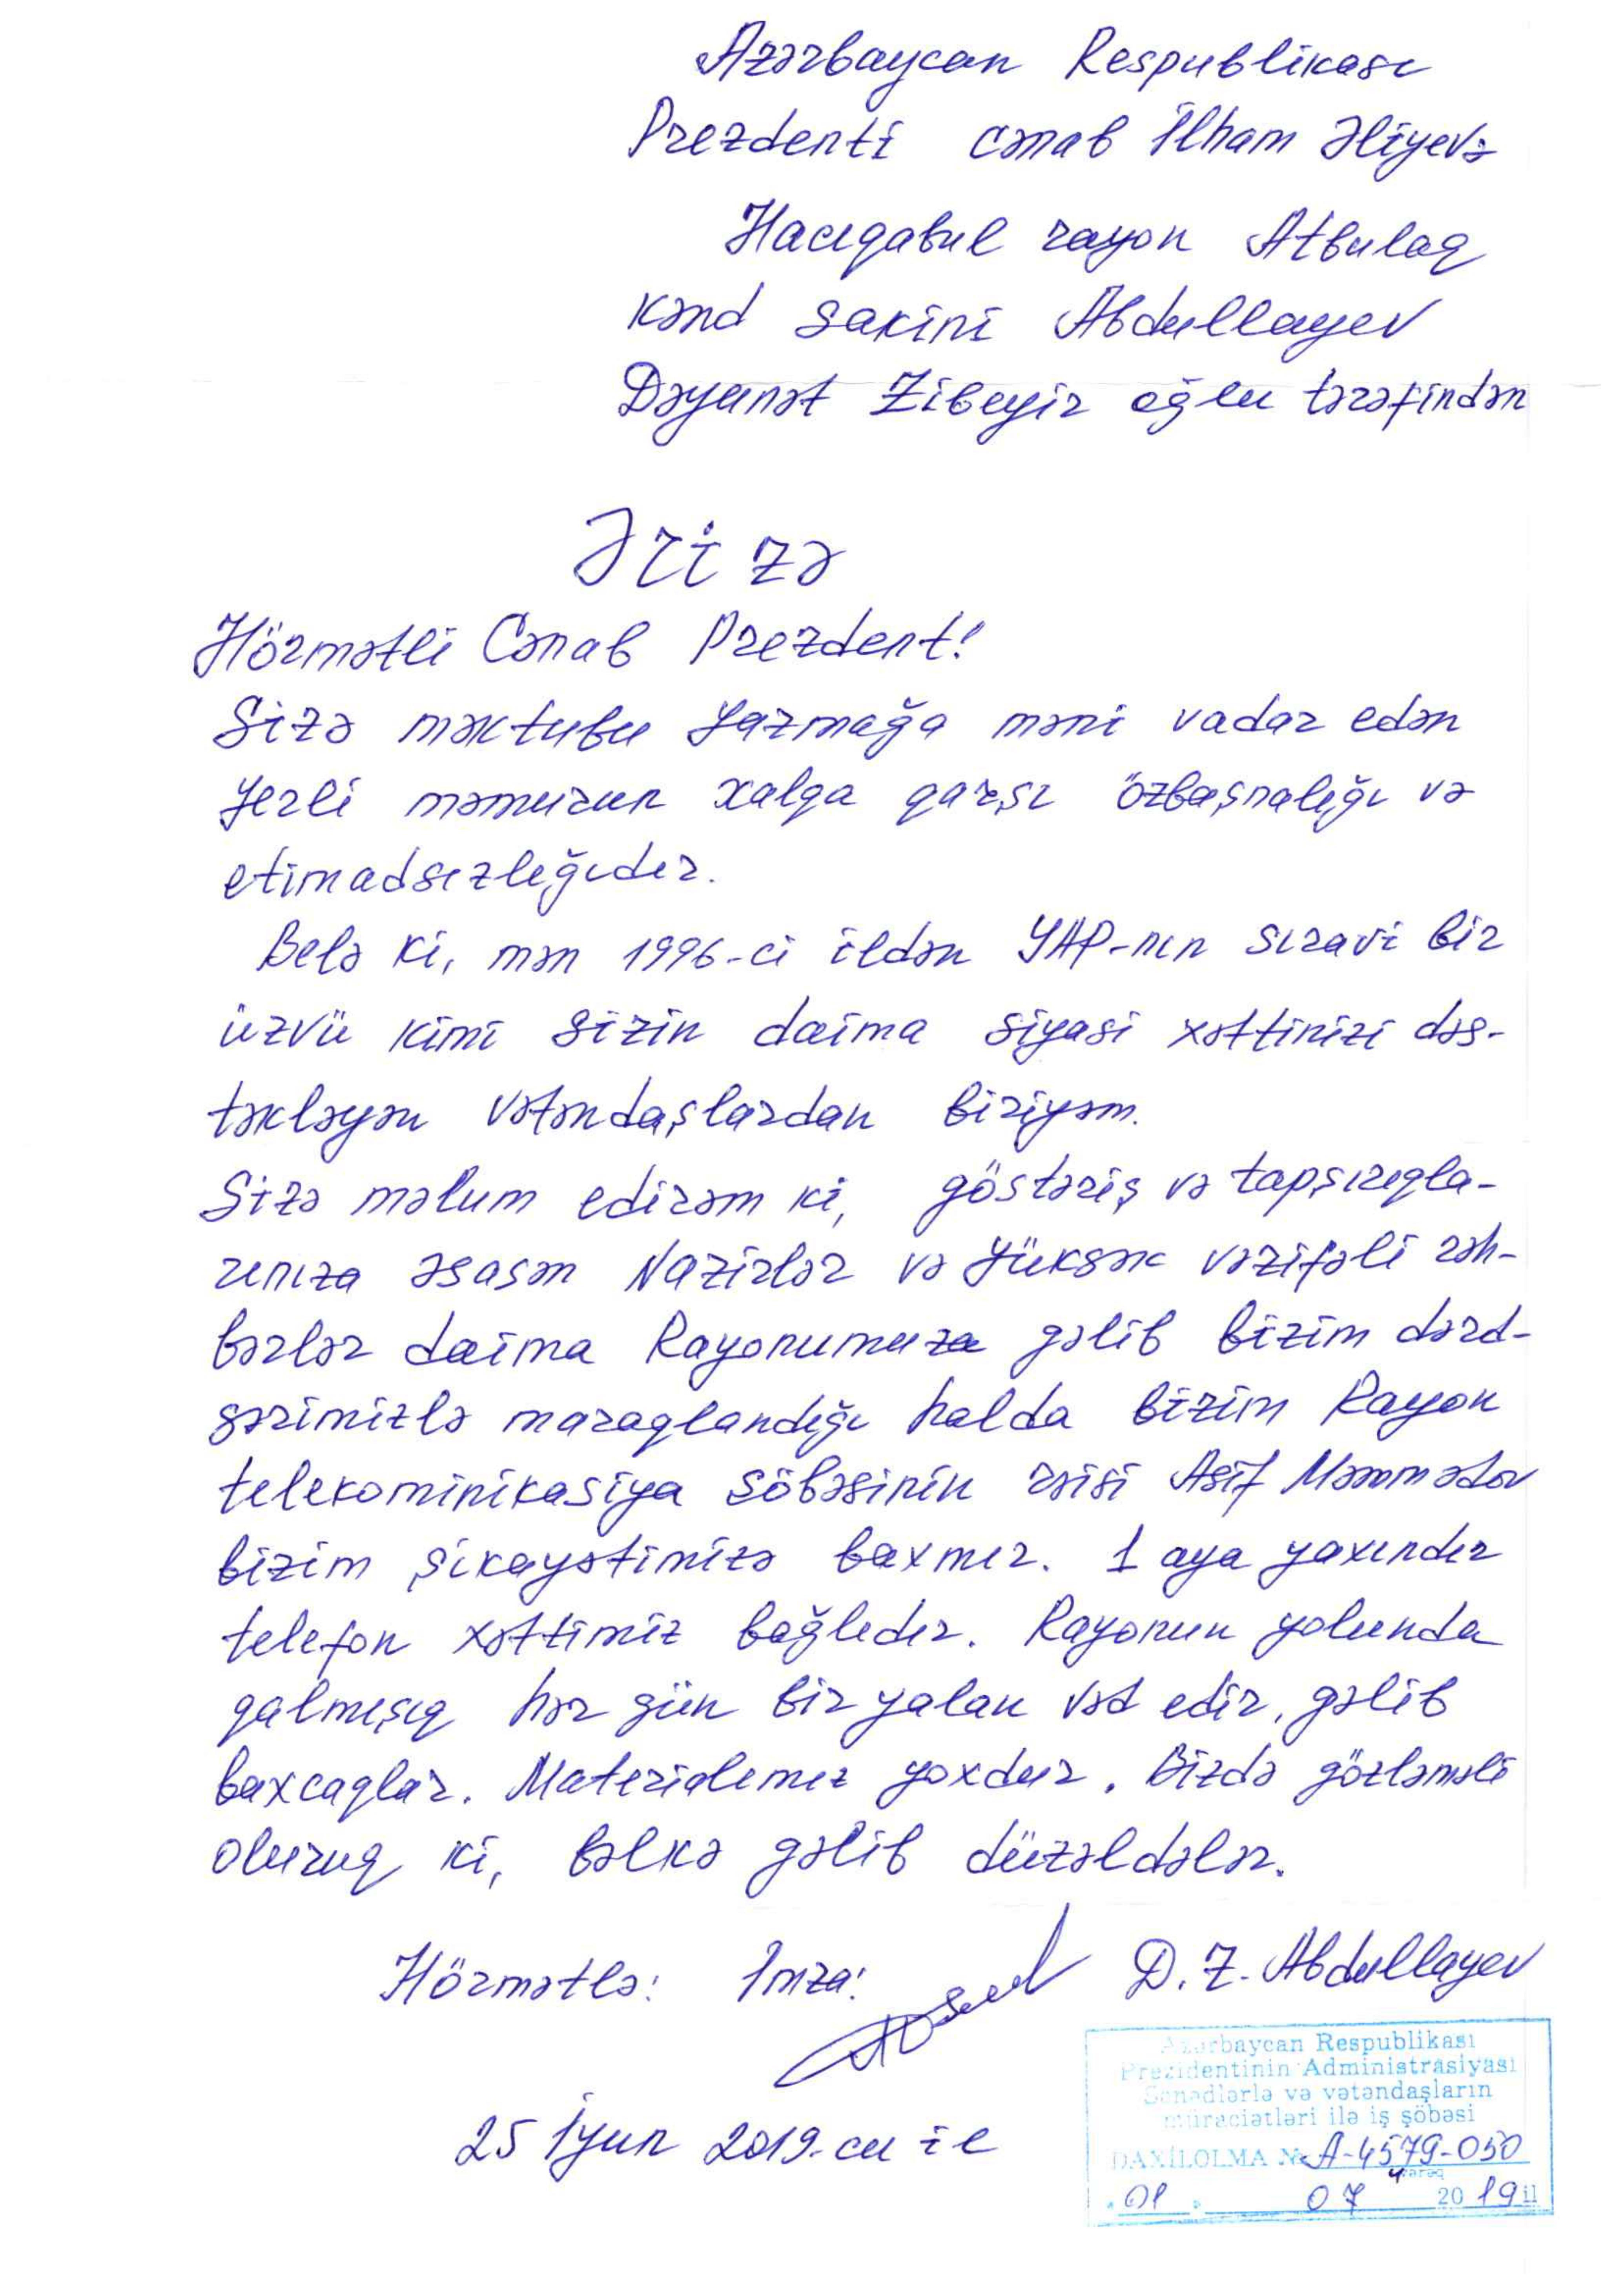 Azərbaycan Respublikası
Prezdenti cənab İlham Əliyevə
Hacıqabul rayon Atbulaq
kənd sakini Abdullayev
Dəyanət Zibeyir oğlu tərəfindən
Ərizə
Hörmətli Cənab Prezdent!
Sizə məktubu yazmağa məni vadar edən
yerli məmurun xalqa qarşı özbaşnalığı və
etimadsızlığıdır.
Belə ki, mən 1996-ci ildən YAP-nın sıravi bir
üzvü kimi sizin daima siyasi xəttinizi dəs-
təkləyən vətəndaşlardan biriyəm.
Sizə məlum edirəm ki, göstəriş və tapşırıqla-
rınıza əsasən Nazirlər və yüksək vəzifəli rəh-
bərlər daima Rayonumuza gəlib bizim dərd-
sərimizlə maraqlandığı halda bizim Rayon
telekominikasiya şöbəsinin rəisi Asif Məmmədov
bizim şikayətimizə baxmır. 1 aya yaxındır
telefon xəttimiz bağlıdır. Rayonun yolunda
qalmışıq hər gün bir yalan vəd edir, gəlib
baxcaqlar. Materialımız yoxdur. Bizdə gözləməli
oluruq ki, bəlkə gəlib düzəldələr.
Hörmətlə: İmza: D. Z. Abdullayev
25 İyun 2019-cu il
Azərbaycan Respublikası
Prezidentinin Administrasiyası
Sənədlərlə və vətəndaşların
müraciətləri ilə iş şöbəsi
DAXİLOLMA № A-4579-050
vərəq
" 01 " 07 2019 il